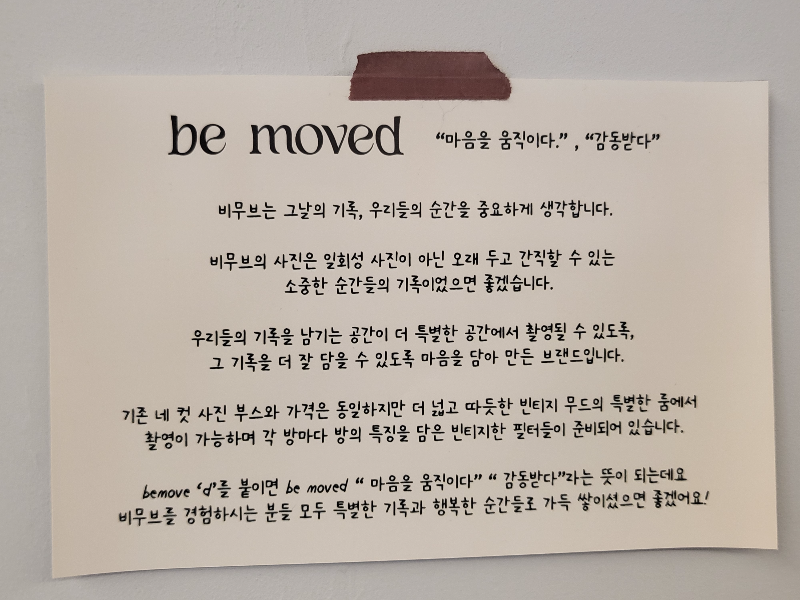 be moved "마음을 움직이다.", "감동받다"
비무브는 그날의 기록, 우리들의 순간을 중요하게 생각합니다.
비무브의 사진은 일회성 사진이 아닌 오래 두고 간직할 수 있는
소중한 순간들의 기록이었으면 좋겠습니다.
우리들의 기록을 남기는 공간이 더 특별한 공간에서 촬영될 수 있도록,
그 기록을 더 잘 담을 수 있도록 마음을 담아 만든 브랜드입니다.
기존 네 컷 사진 부스와 가격은 동일하지만 더 넓고 따듯한 빈티지 무드의 특별한 룸에서
촬영이 가능하며 각 방마다 방의 특징을 담은 빈티지한 필터들이 준비되어 있습니다.
bemove 'd'를 붙이면 be moved " 마음을 움직이다" " 감동받다"라는 뜻이 되는데요
비무브를 경험하시는 분들 모두 특별한 기록과 행복한 순간들로 가득 쌓이셨으면 좋겠어요!